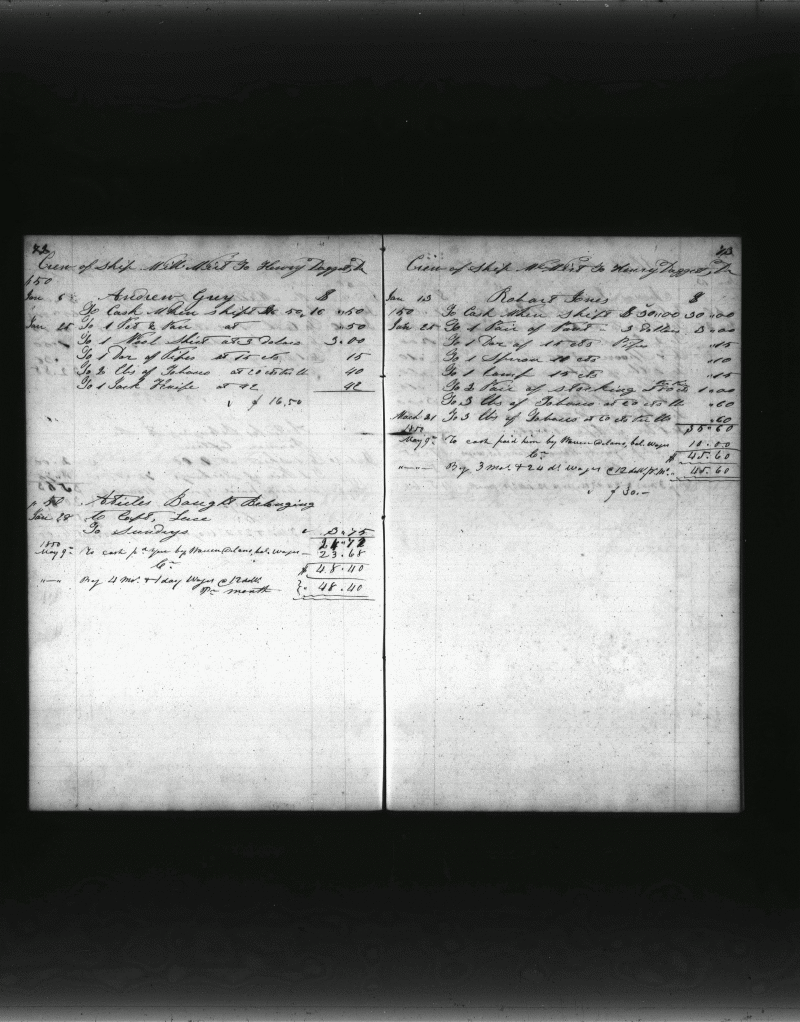 Crew of Ship Nth. West To Henry Daggett, Dr
Jan 5 Andrew Guy $
To Cash When Shipt 16.50
Jan 28 To 1 Pot & Pan at .50
To 1 Wool Shirt at 3 Dolars 3.00
To 1 Doz of Pipes at 15 cts 15
To 2 Lbs of Tobacco at 20 cts the lb 40
To 1 Jack Knife at 42 42
$ 16.50
Articles Bought Belonging
Jan 28 to Capt, Luce
To Sundrys 3.75
1850 24.72
May 9th To cash pd by bal. Wages 23.68
Cr $ 48.40
By 4 Mos. & 1 day Wages @ 12 doll. 48.40
Pr month
43
Crew of Ship Nth. West To Henry Daggett, Dr
Jan 13 Robart Jones $
150 To Cash When Shipt $ 30.00 30.00
Jan 28 To 1 Pair of 3 Dollars 3.00
To 1 Doz of 15 cts Pipes .15
To 1 Spoon 10 cts .10
To 1 Lamp 15 cts .15
To 2 Pair of Stocking 1.00
To 3 Lbs of Tobacco at 20 cts the lb .60
March 21 To 3 Lbs of Tobacco at 20 cts the lb .60
1850 35.60
May 9th To cash paid him by bal. Wages 10.00
Cr $ 45.60
By 3 Mos. & 24 ds Wages @ 12 doll. pr Mo. 45.60
$ 30.-